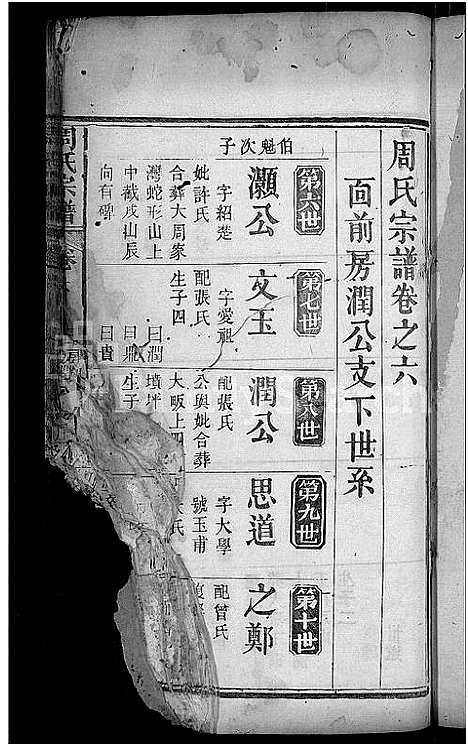 周氏宗譜卷之六
面前房潤公支下世系
第六世
伯魁次子
灝公
字紹楚
妣許氏
合葬大周家
灣蛇形山上
中截戌山辰
向有碑
第七世
文玉
字愛祖
配張氏
生子四
曰潤
曰鼎
曰貴
第八世
潤公
配張氏
公與妣合葬
大畈上四
墳坪
生子
第九世
思道
字大學
號玉甫
氏
第十世
之鄭
配曾氏
周氏宗譜
卷